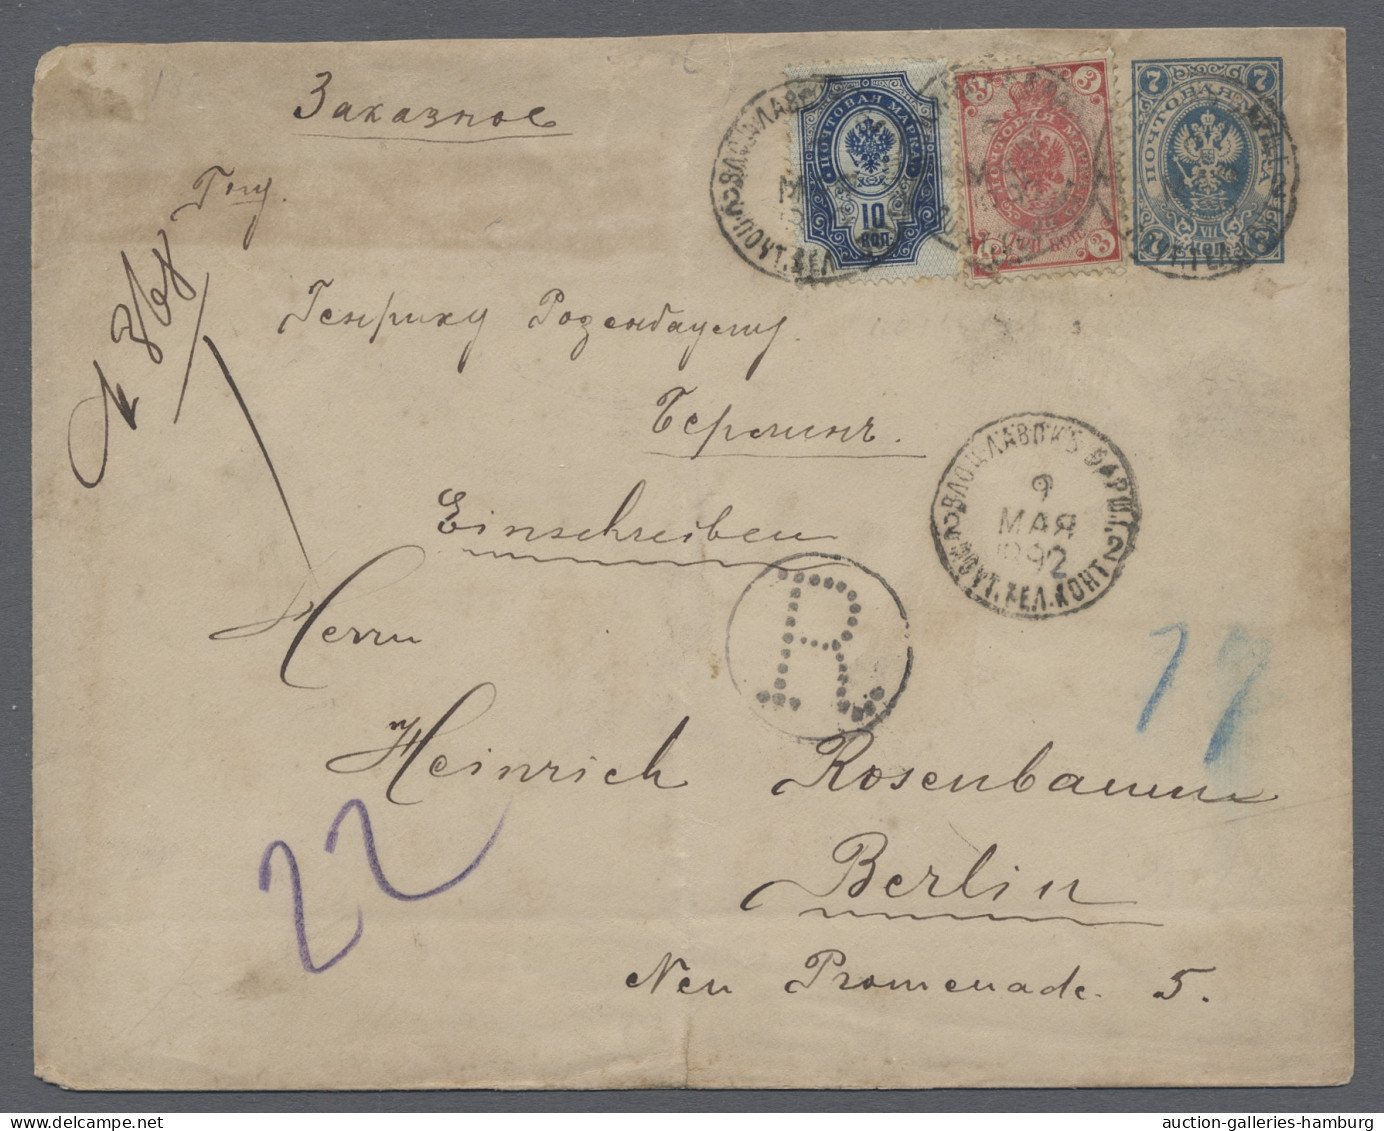 Заказное
Гну.
№ 368
Генриху Розенбауму.
Берлинъ.
Einschreiben
Herrn
Heinrich Rosenbaum
Berlin
Neu Promenade. 5.
22
17
R
ПОЧТОВАЯ МАРКА
10
КОП.
3 3
ПОЧТОВАЯ МАРКА
ТРИ КОП.
3 3
7 7
ПОЧТОВАЯ МАРКА
КОП.
7 7
ВЛОЦЛАВСКЪ ВАРШ. Г.
9
МАЯ
1892
2 ПОЧТ. ТЕЛ. КОНТ. 2
auction-galleries-hamburg